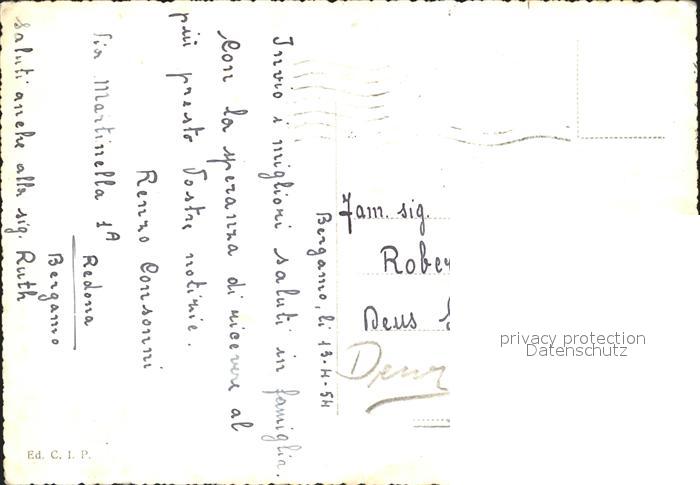 Bergamo, li 13-4-54
Invio i migliori saluti in famiglia.
Con la speranza di ricevere al
più presto Vostre notizie.
Renzo Consonni
Via Martinella 1A
Redona
Bergamo
saluti anche alla sig. Ruth
Fam. sig.
Robey
Deus
Ed. C. I. P.
privacy protection
Datenschutz